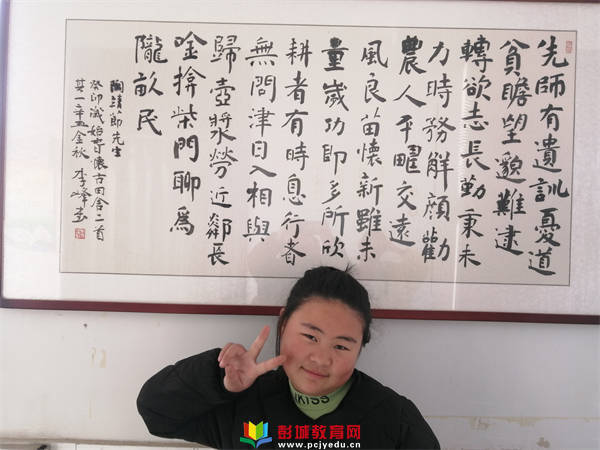 先師有遺訓憂道
貧瞻望邈難逮
轉欲志長勤秉耒
力時務解顏勸
農人平疇交遠
風良苗懷新雖未
量歲功即多所欣
耕者有時息行者
無問津日入相與
歸壺漿勞近鄰長
唫揜柴門聊為
隴畝民
陶靖節先生
癸卯歲始春懷古田舍二首
其一辛丑金秋李峰書
KISS
彭城教育网
www.pcjyedu.cn